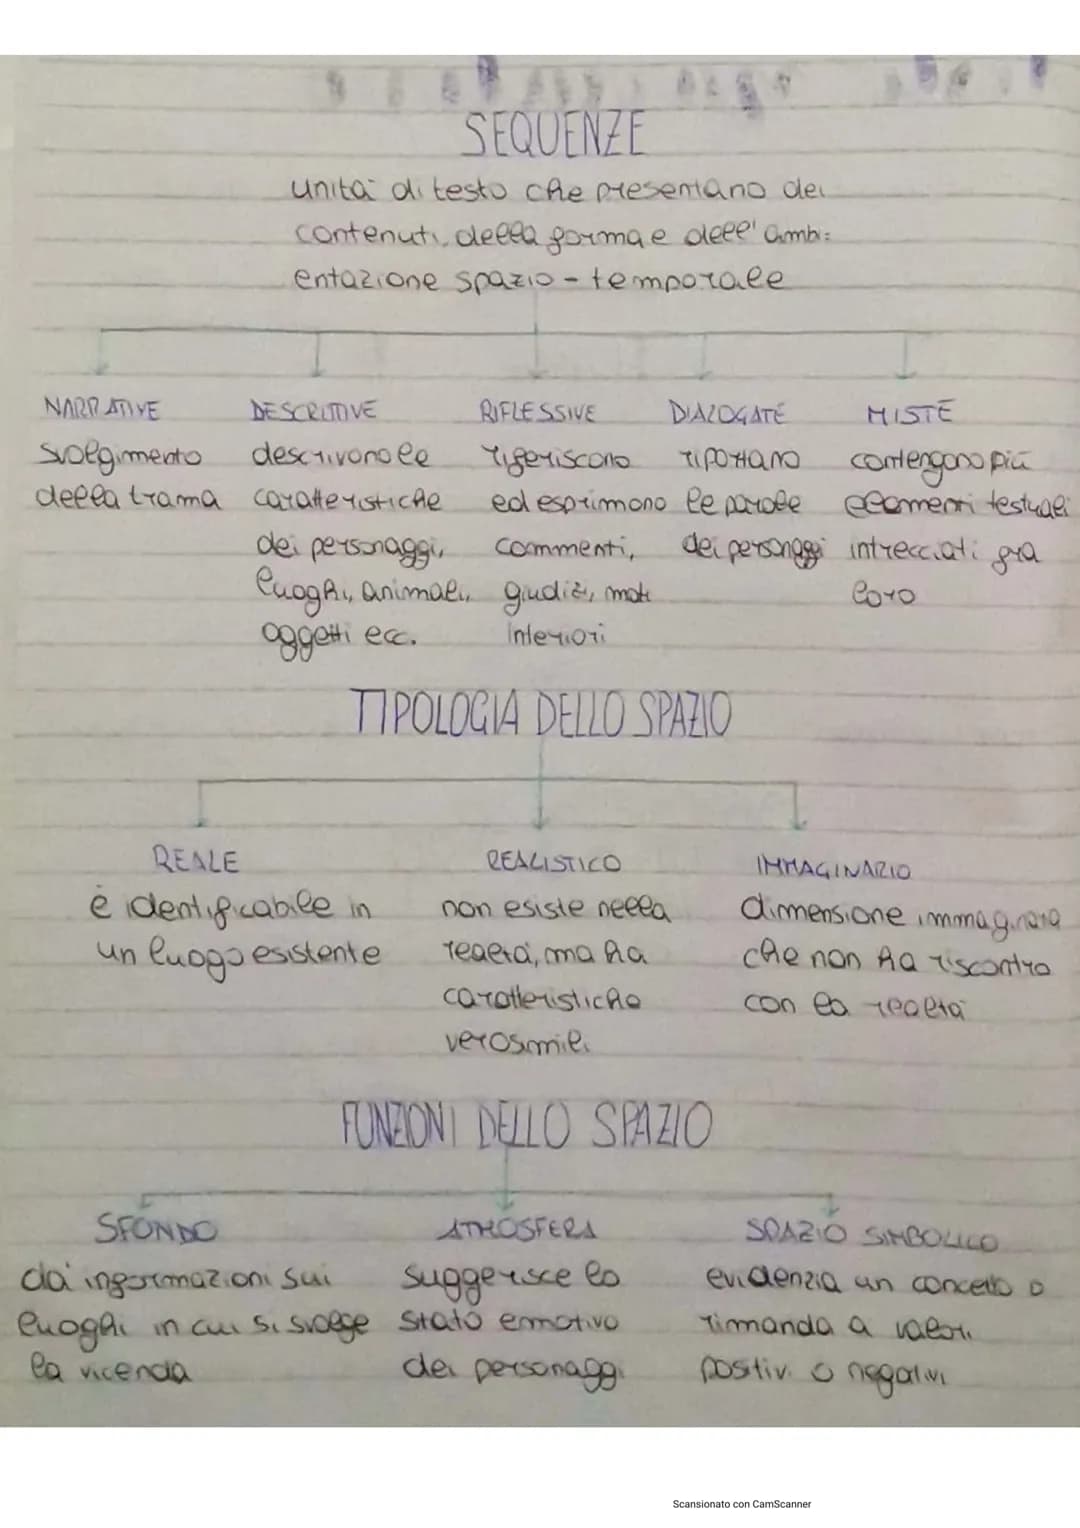 SEQUENZE
unità di testo che presentano dei
contenuti, della forma e dell'ambi=
entazione spazio - temporale
NARRATIVE
svolgimento
della trama
DESCRITTIVE
descrivono le
caratteristiche
dei personaggi,
luoghi, animali,
oggetti ecc.
RIFLESSIVE
riferiscono
ed esprimono
commenti,
giudizi, moti
interiori
DIALOGATE
riportano
le parole
dei personaggi
MISTE
contengono più
elementi testuali
intrecciati fra
loro
TIPOLOGIA DELLO SPAZIO
REALE
è identificabile in
un luogo esistente
REALISTICO
non esiste nella
realtà, ma ha
caratteristiche
verosimili
IMMAGINARIO
dimensione immaginata
che non ha riscontro
con la realtà
FUNZIONI DELLO SPAZIO
SFONDO
dà informazioni sui
luoghi in cui si svolge
la vicenda
ATMOSFERA
suggerisce lo
stato emotivo
dei personaggi
SPAZIO SIMBOLICO
evidenzia un concetto o
rimanda a valori
positivi o negativi
Scansionato con CamScanner